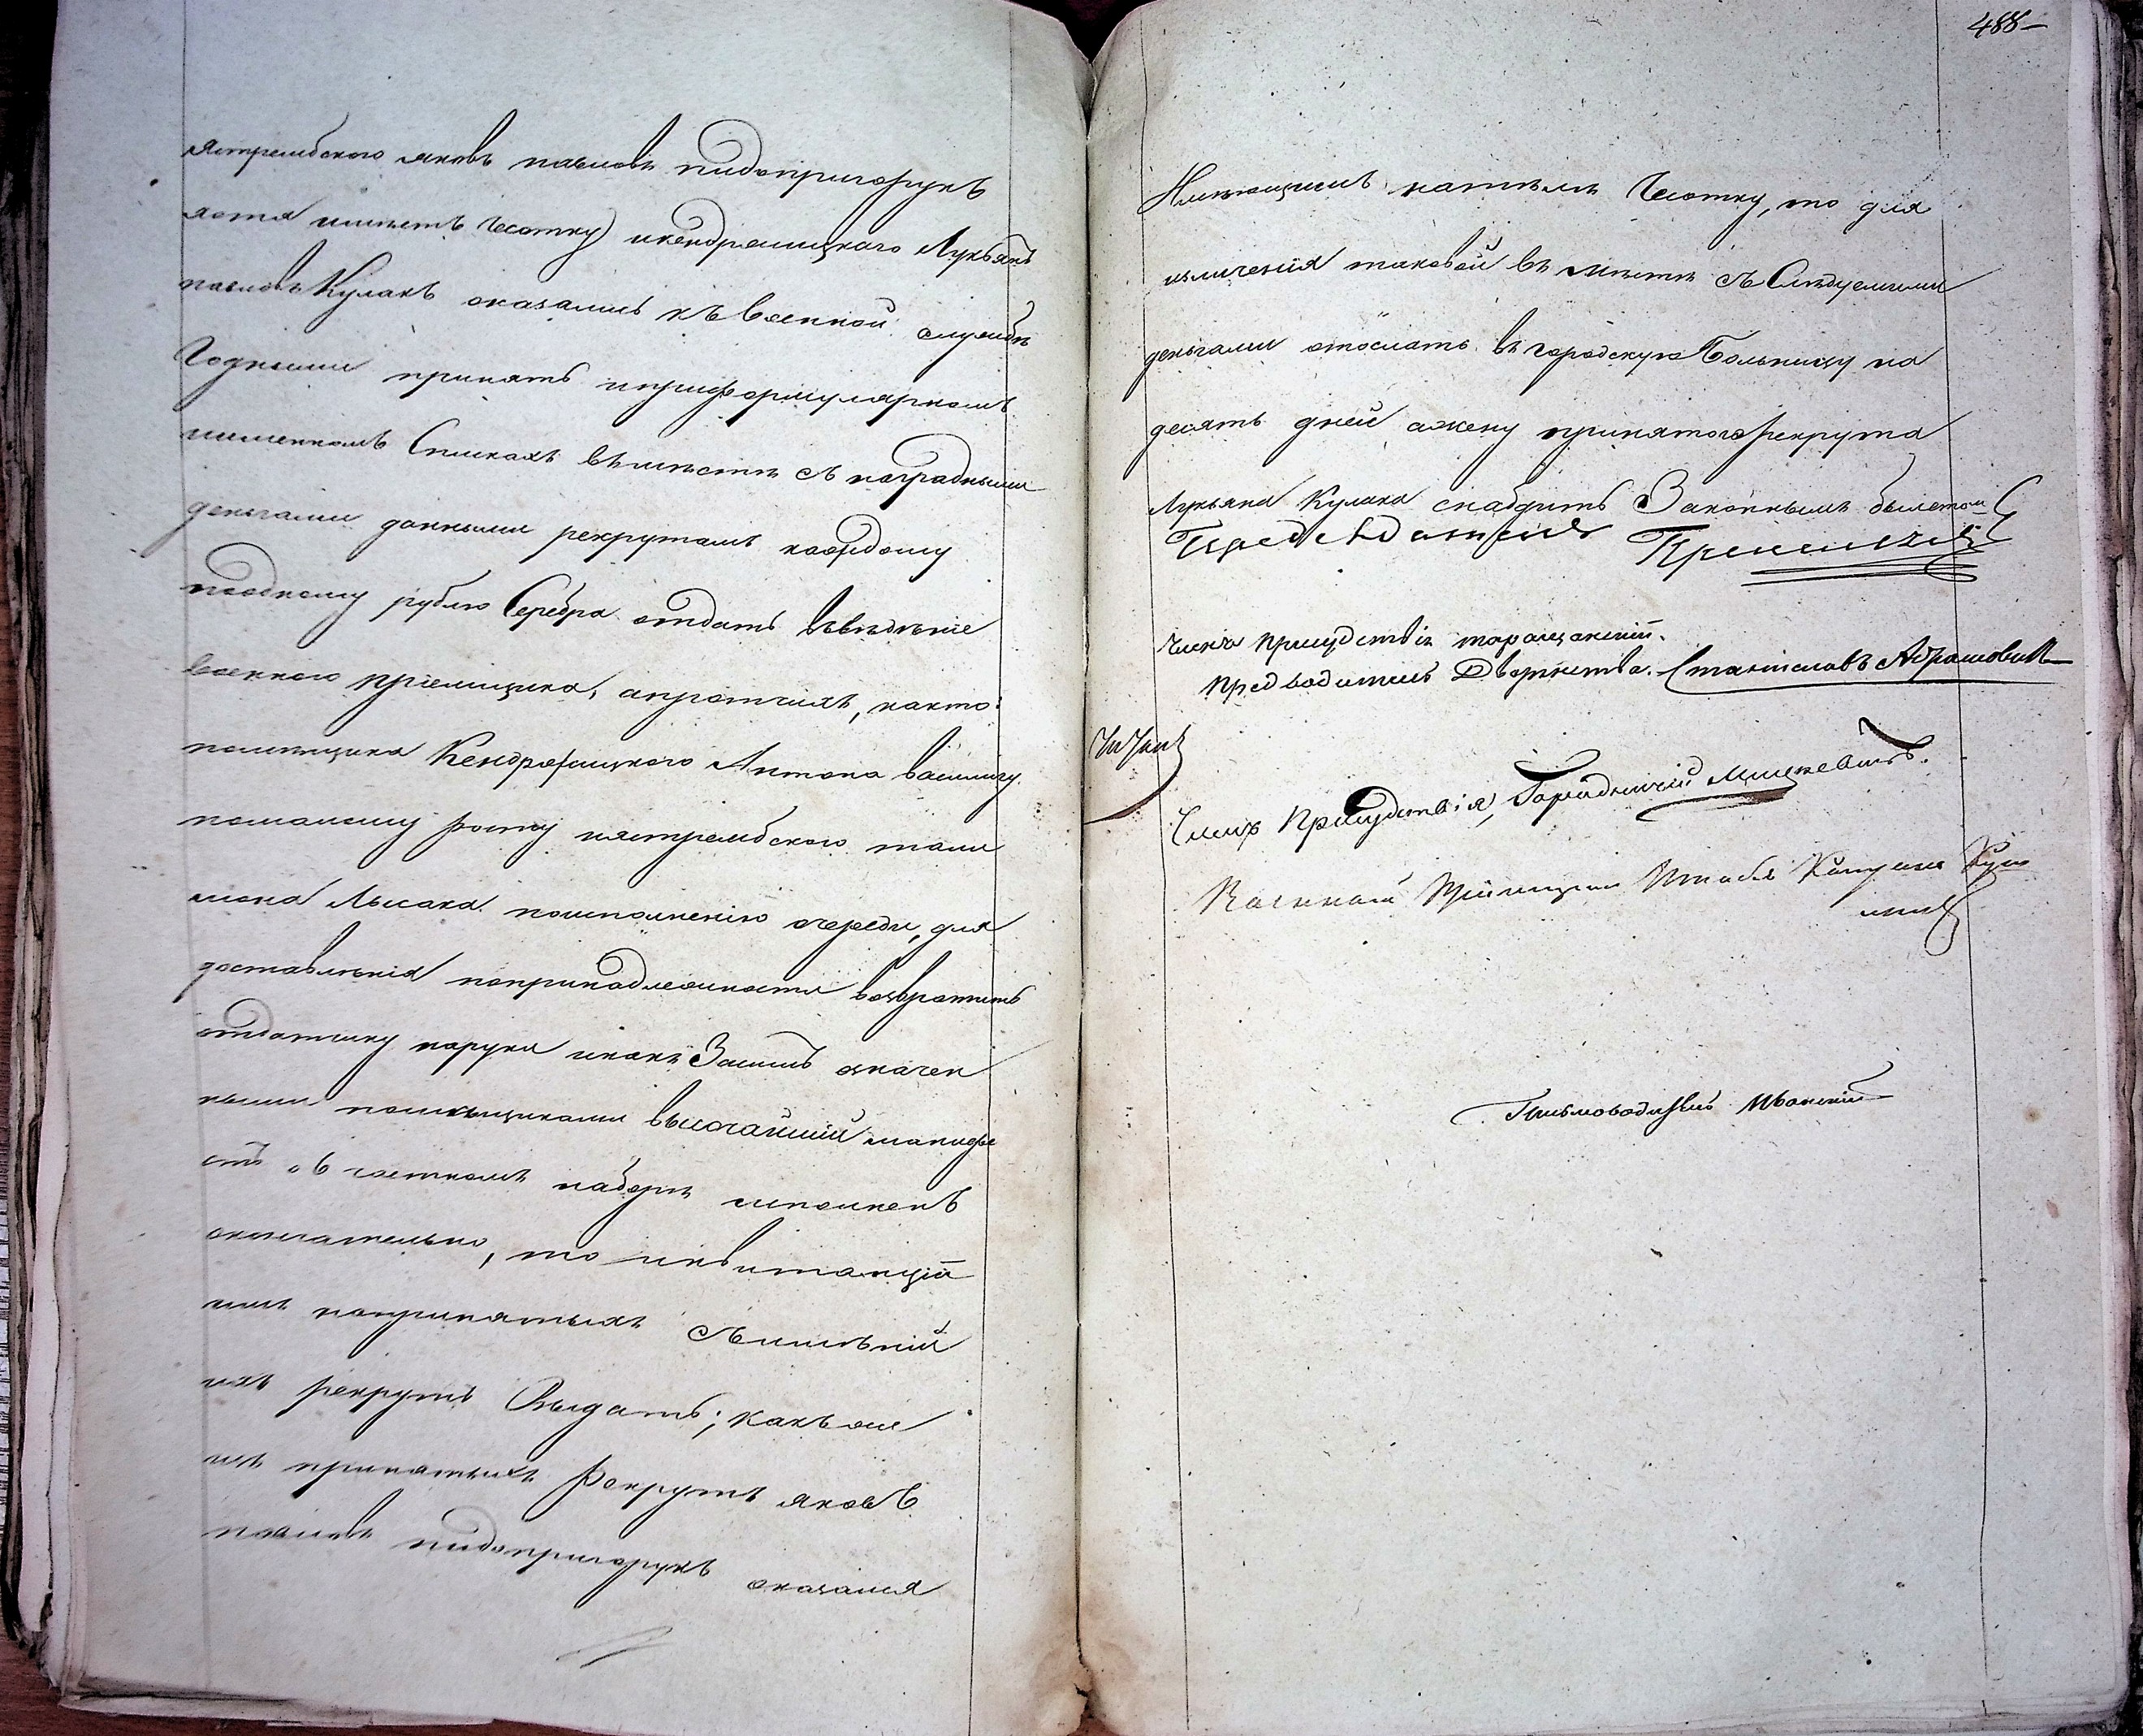 Ястрембского яковъ павловъ пидопригорукъ
хотя имѣетъ чесотку) икендржицкаго Лукьянъ
павловъ Кулакъ оказались къ военной службѣ
Годными принять ипри формулярномъ
именномъ Спискахъ вѣместе съ наградными
деньгами данными рекрутамъ каждому
поодному рублю Серебра отдать въвѣденіе
военного пріемщика, апротчихъ, както:
помѣщика Антона
помалому росту иястрембского
Лысака поисполненію очереди, для
доставленія попринадлежности возвратить
отдатчику наруки икакъ Засимъ означен
ными помѣщиками высочайшій манифе
стъ о частномъ наборѣ исполненъ
окончательно, то иквитанціи
имъ попринятыхъ
ихъ рекрутъ Выдать; какъ же
изъ принятыхъ Рекрутъ яковъ
павловъ пидопригорукъ оказался
488
Имѣющимъ натѣлѣ Чесотку, то для
изличенія таковой въ мѣсте съ Слѣдуемыми
деньгами отослать въ городскую Больницу на
десять дней ажену принятого рекрута
Лукьяна Кулака снабдить Законнымъ билетом
Председатель
Члѣнъ присудствія таращанскій
предводитель Дворянства. Станиславъ Абрамовичъ
Членъ Присудствія, Городничій
Военный Пріемщикъ Штабсъ Капитанъ
Письмоводитель Ивонскій